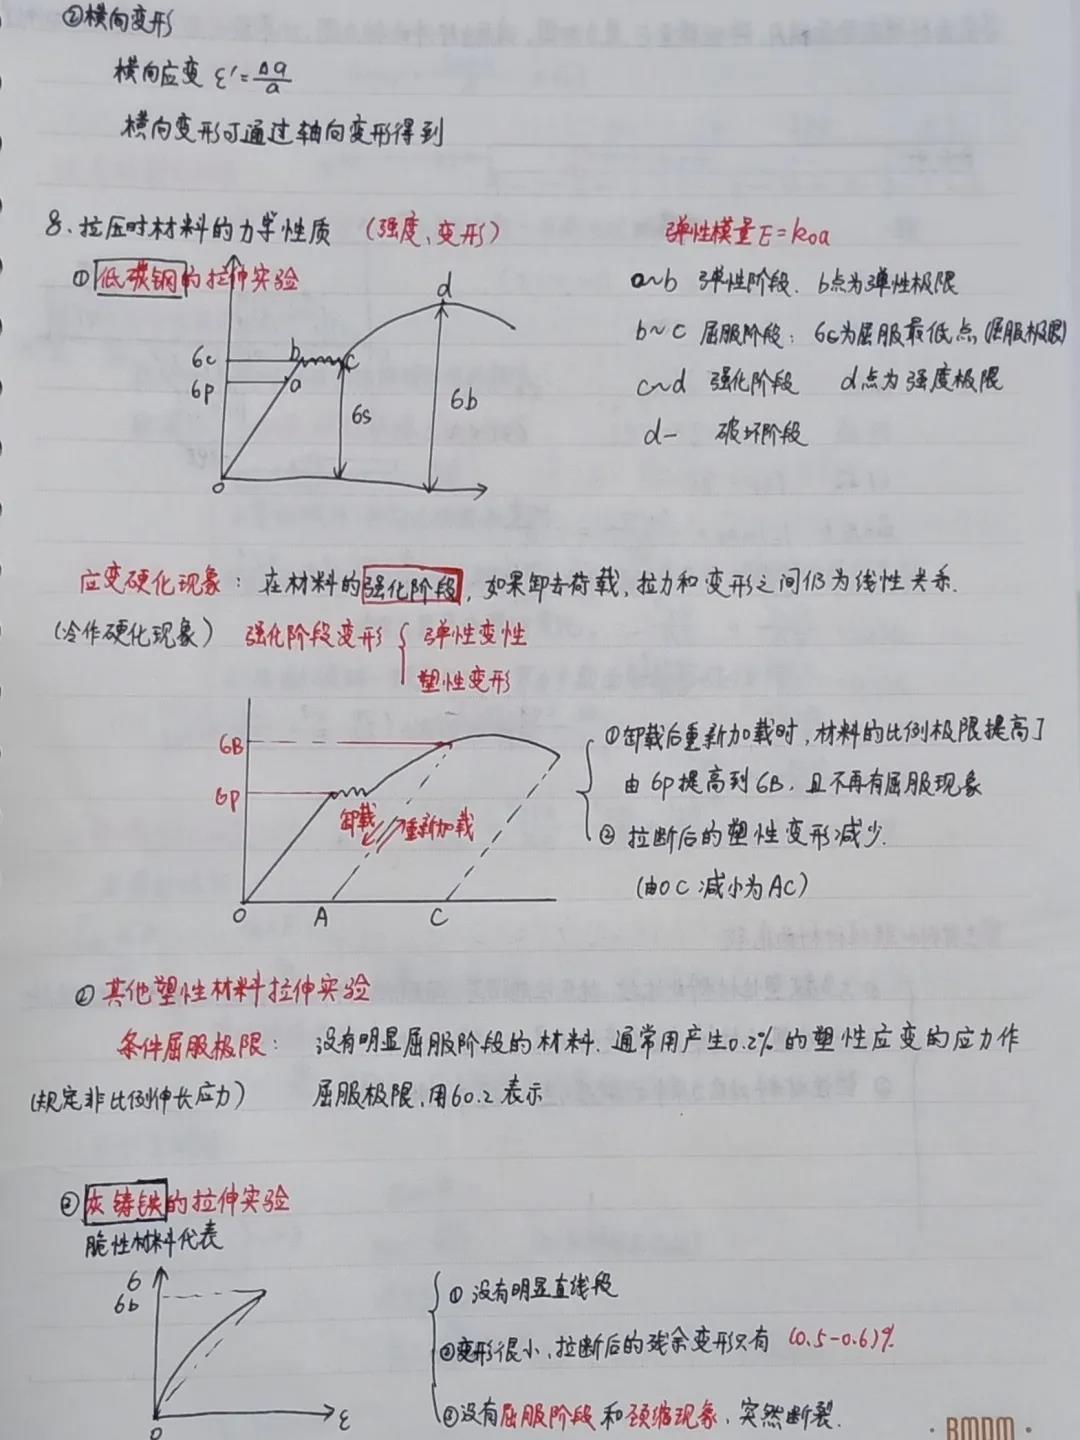 ②横向变形
横向应变 ε'=Δa/a
横向变形可通过轴向变形得到
8、拉压时材料的力学性质 (强度、变形) 弹性模量E=koa
①低碳钢的拉伸实验
a~b 弹性阶段. b点为弹性极限
b~c 屈服阶段: 6c为屈服最低点(屈服极限)
c~d 强化阶段 d点为强度极限
d- 破坏阶段
d
6c b c
6p a
6s 6b
0
应变硬化现象: 在材料的强化阶段, 如果卸去荷载, 拉力和变形之间仍为线性关系.
(冷作硬化现象) 强化阶段变形 { 弹性变性
塑性变形
6B
6p
卸载 重新加载
0 A C
①卸载后重新加载时, 材料的比例极限提高了
由6p提高到6B, 且不再有屈服现象
②拉断后的塑性变形减少.
(由OC减小为AC)
②其他塑性材料拉伸实验
条件屈服极限: 没有明显屈服阶段的材料. 通常用产生0.2%的塑性应变的应力作
(规定非比例伸长应力) 屈服极限, 用60.2表示
③灰铸铁的拉伸实验
脆性材料代表
6
6b
0 ε
①没有明显直线段
②变形很小, 拉断后的残余变形只有 (0.5-0.6)%
③没有屈服阶段和颈缩现象, 突然断裂.
·BMDM·